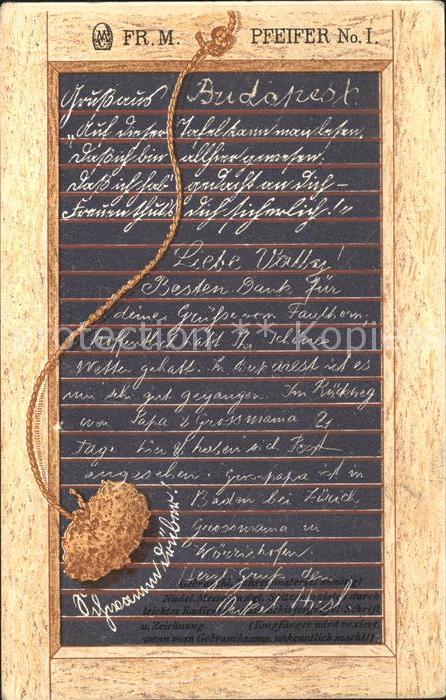 FR. M. PFEIFER No. I.
Gruß aus Budapest.
„Auf dieser Tafel kann man lesen,
Daß ich bin allhier gewesen.
Daß ich hab' gedacht an dich –
Freuen thut's dich sicherlich!"
Liebe
Besten Dank für
deine Grüsse vom Faulhorn.
Hoffentlich habt Ihr schönes
Wetter gehabt. In ist es
mir sehr gut gegangen. Im Rückweg
von Papa & Grossmama 2
Tage hier & haben sich Pest
angesehen. Grosspapa ist in
Baden bei Zürich
Grossmama in
Wörishofen.
Herzl. Gruss dein
Schwamm drüber!
Protection ** Kopie
leichtes Radier Schrift
u. Zeichnung (Empfänger wird vexiert,
wenn man Gebrauchtanw. unkenntlich macht!)